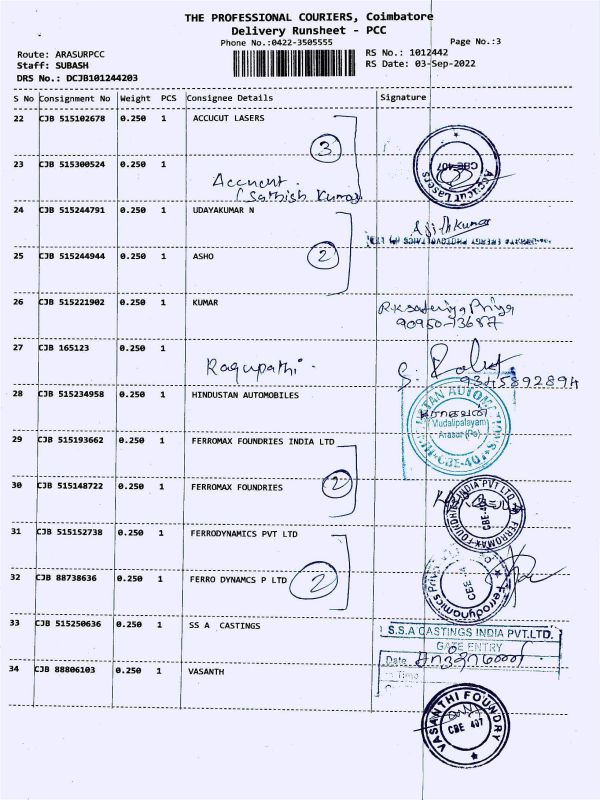 THE PROFESSIONAL COURIERS, Coimbatore
Delivery Runsheet - PCC
Phone No.:0422-3505555
Page No.:3
Route: ARASURPCC
RS No.: 1012442
Staff: SUBASH
RS Date: 03-Sep-2022
DRS No.: DCJB101244203
S No Consignment No Weight PCS Consignee Details Signature
22 CJB 515102678 0.250 1 ACCUCUT LASERS
3
Accucut Lasers
CBE-407
23 CJB 515300524 0.250 1
Accucut.
(Sathish Kumar)
24 CJB 515244791 0.250 1 UDAYAKUMAR N
Ajith Kumar
25 CJB 515244944 0.250 1 ASHO
2
26 CJB 515221902 0.250 1 KUMAR
Priya
90950-73687
27 CJB 165123 0.250 1
Ragupathi.
9345892894
28 CJB 515234958 0.250 1 HINDUSTAN AUTOMOBILES
Mudalipalayam
Arasur (Po)
CBE-407
29 CJB 515193662 0.250 1 FERROMAX FOUNDRIES INDIA LTD
30 CJB 515148722 0.250 1 FERROMAX FOUNDRIES
2
FERROMAX FOUNDRIES INDIA PVT LTD
31 CJB 515152738 0.250 1 FERRODYNAMICS PVT LTD
32 CJB 88738636 0.250 1 FERRO DYNAMCS P LTD
2
Ferrodynamics
CBE
33 CJB 515250636 0.250 1 SS A CASTINGS
S.S.A CASTINGS INDIA PVT.LTD.
GATE ENTRY
Date
Time
34 CJB 88806103 0.250 1 VASANTH
VASANTHI FOUNDRY
CBE 407